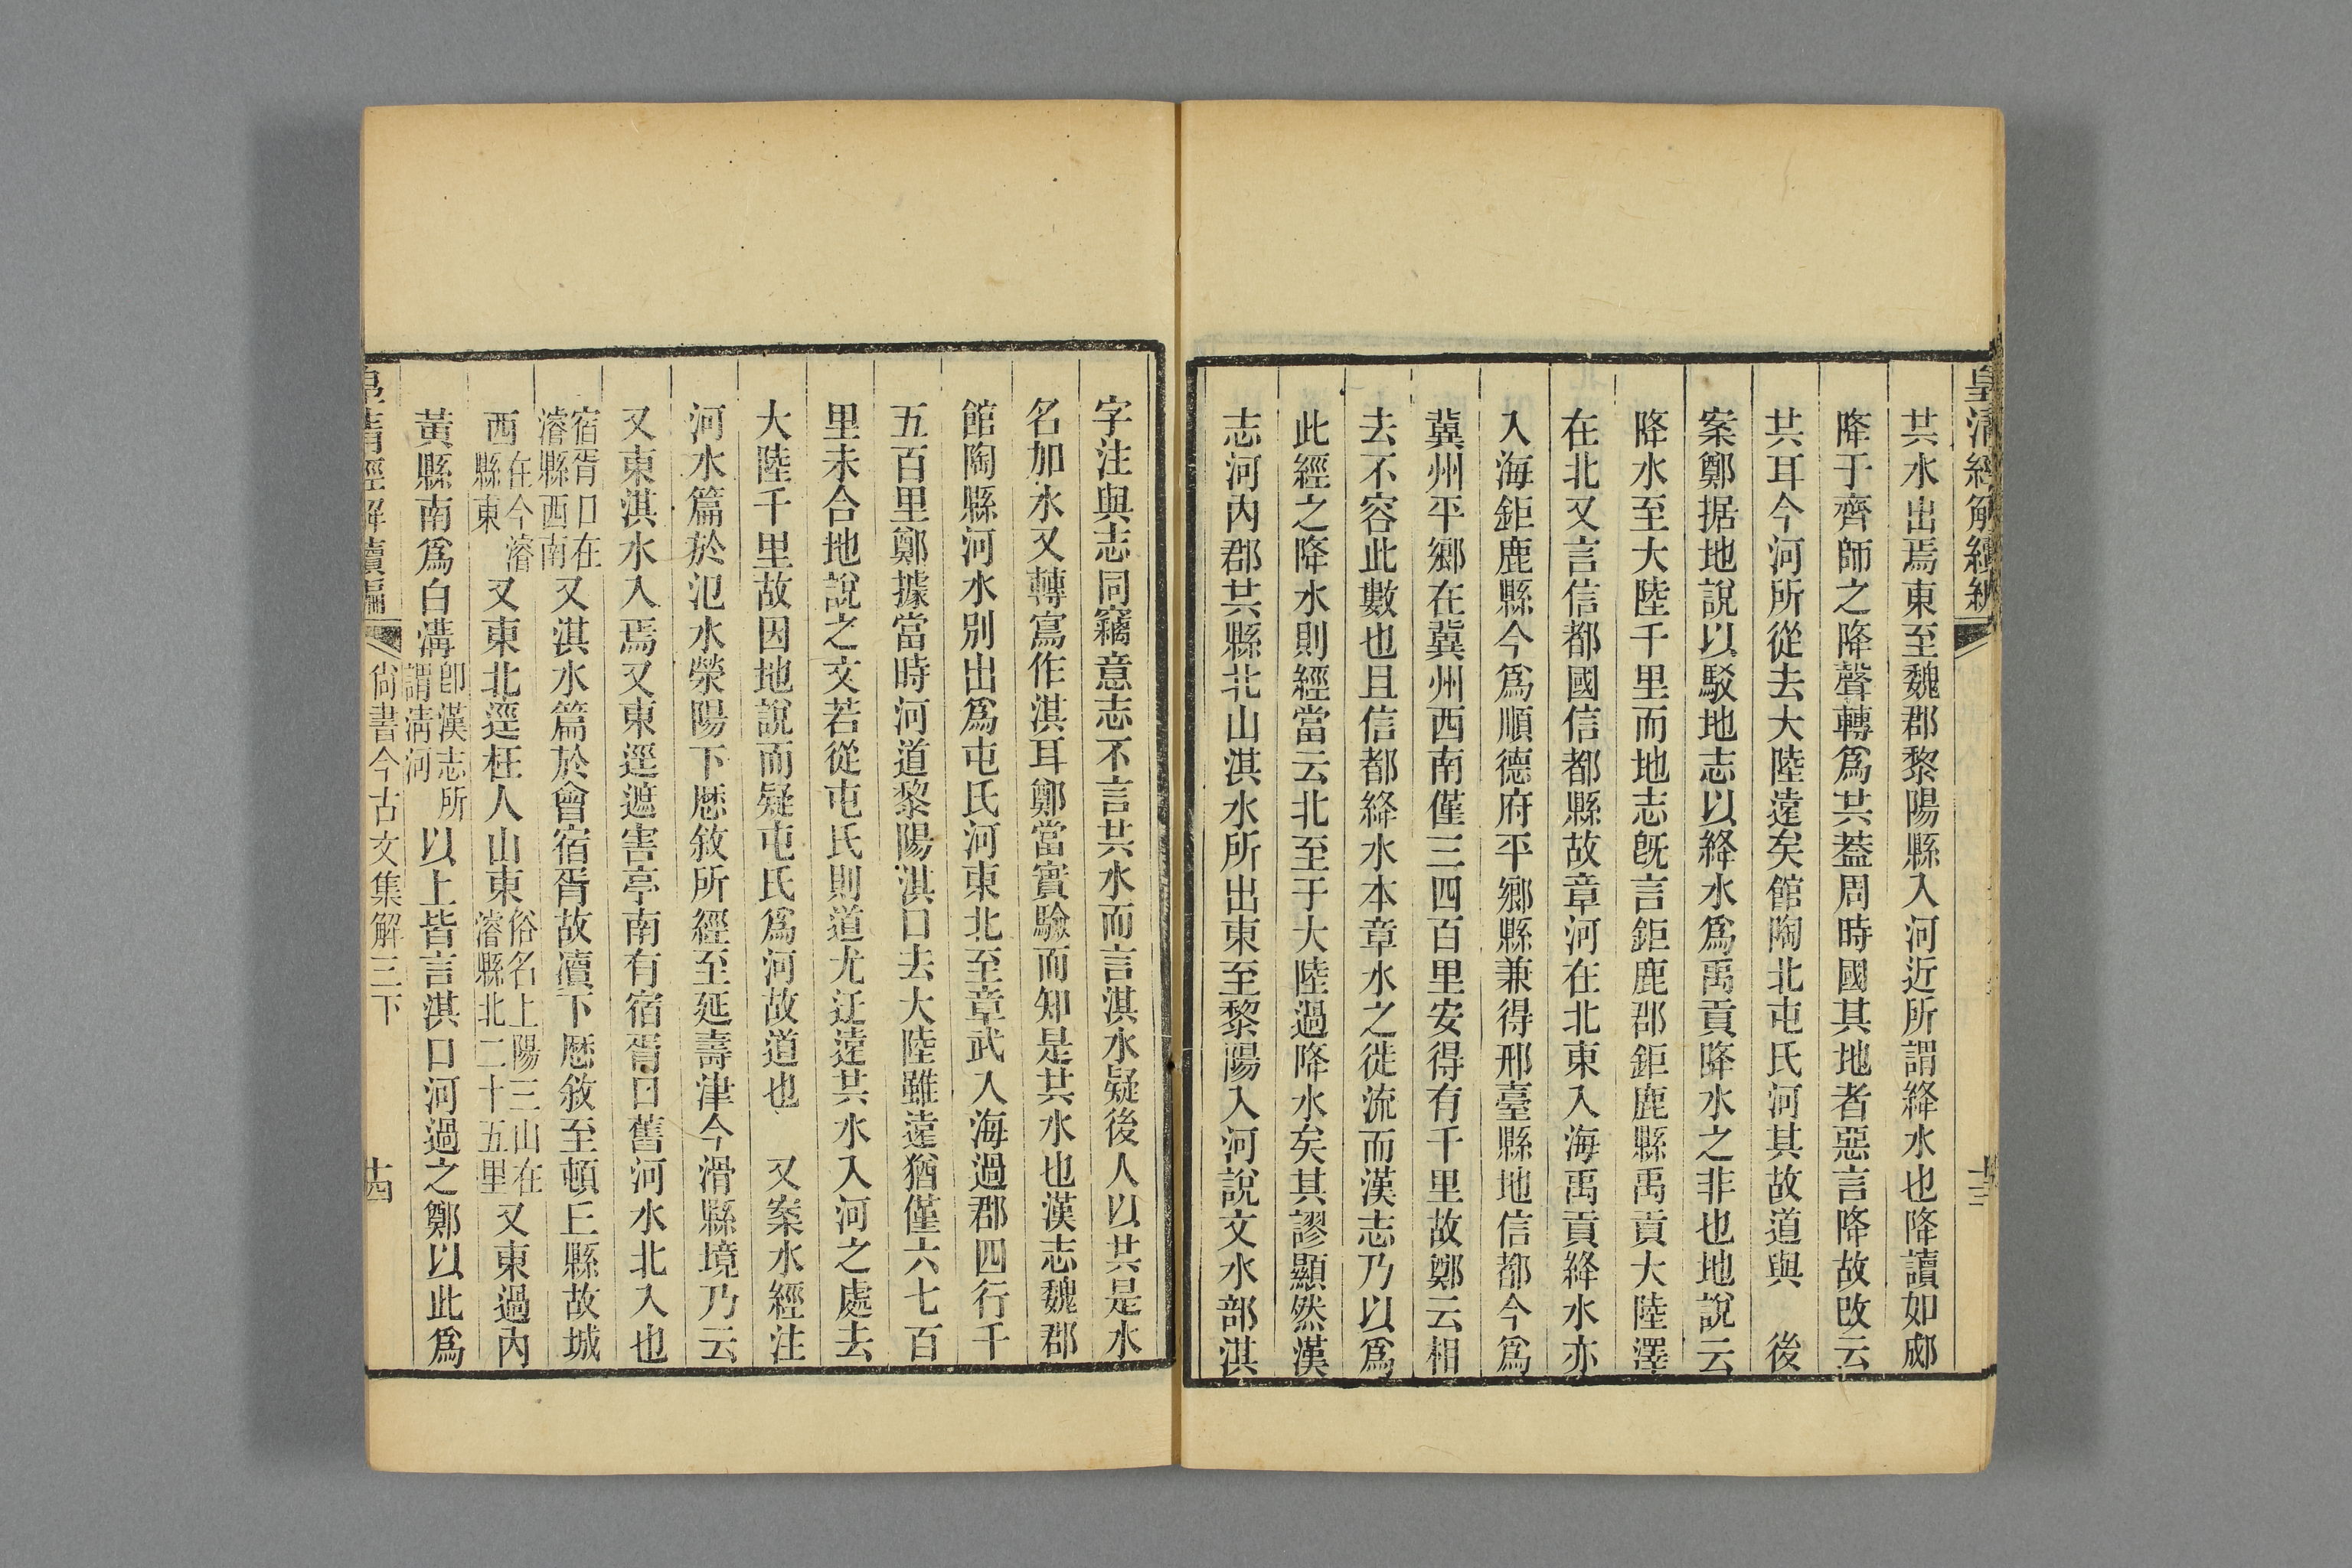 皇清經解續編
共水出焉東至魏郡黎陽縣入河近所謂絳水也降讀如郕
降于齊師之降聲轉爲共蓋周時國其地者惡言降故改云
共耳今河所從去大陸遠矣館陶北屯氏河其故道與　後
案鄭据地說以駁地志以絳水爲禹貢降水之非也地說云
降水至大陸千里而地志旣言鉅鹿郡鉅鹿縣禹貢大陸澤
在北又言信都國信都縣故章河在北東入海禹貢絳水亦
入海鉅鹿縣今爲順德府平鄉縣兼得邢臺縣地信都今爲
冀州平鄉在冀州西南僅三四百里安得有千里故鄭云相
去不容此數也且信都絳水本章水之徙流而漢志乃以爲
此經之降水則經當云北至于大陸過降水矣其謬顯然漢
志河內郡共縣北山淇水所出東至黎陽入河說文水部淇
字注與志同竊意志不言共水而言淇水疑後人以共是水
名加水又轉寫作淇耳鄭當實驗而知是共水也漢志魏郡
館陶縣河水別出爲屯氏河東北至章武入海過郡四行千
五百里鄭據當時河道黎陽淇口去大陸雖遠猶僅六七百
里未合地說之文若從屯氏則道尤迂遠共水入河之處去
大陸千里故因地說而疑屯氏爲河故道也　又案水經注
河水篇於氾水滎陽下歷敘所經至延壽津今滑縣境乃云
又東淇水入焉又東逕遮害亭南有宿胥口舊河水北入也
宿胥口在濬縣西南又淇水篇於會宿胥故瀆下歷敘至頓丘縣故城
西在今濬縣東又東北逕枉人山東俗名上陽三山在濬縣北二十五里又東過內
黃縣南爲白溝卽漢志所謂清河以上皆言淇口河過之鄭以此爲
皇清經解續編　尙書今古文集解三下　十四